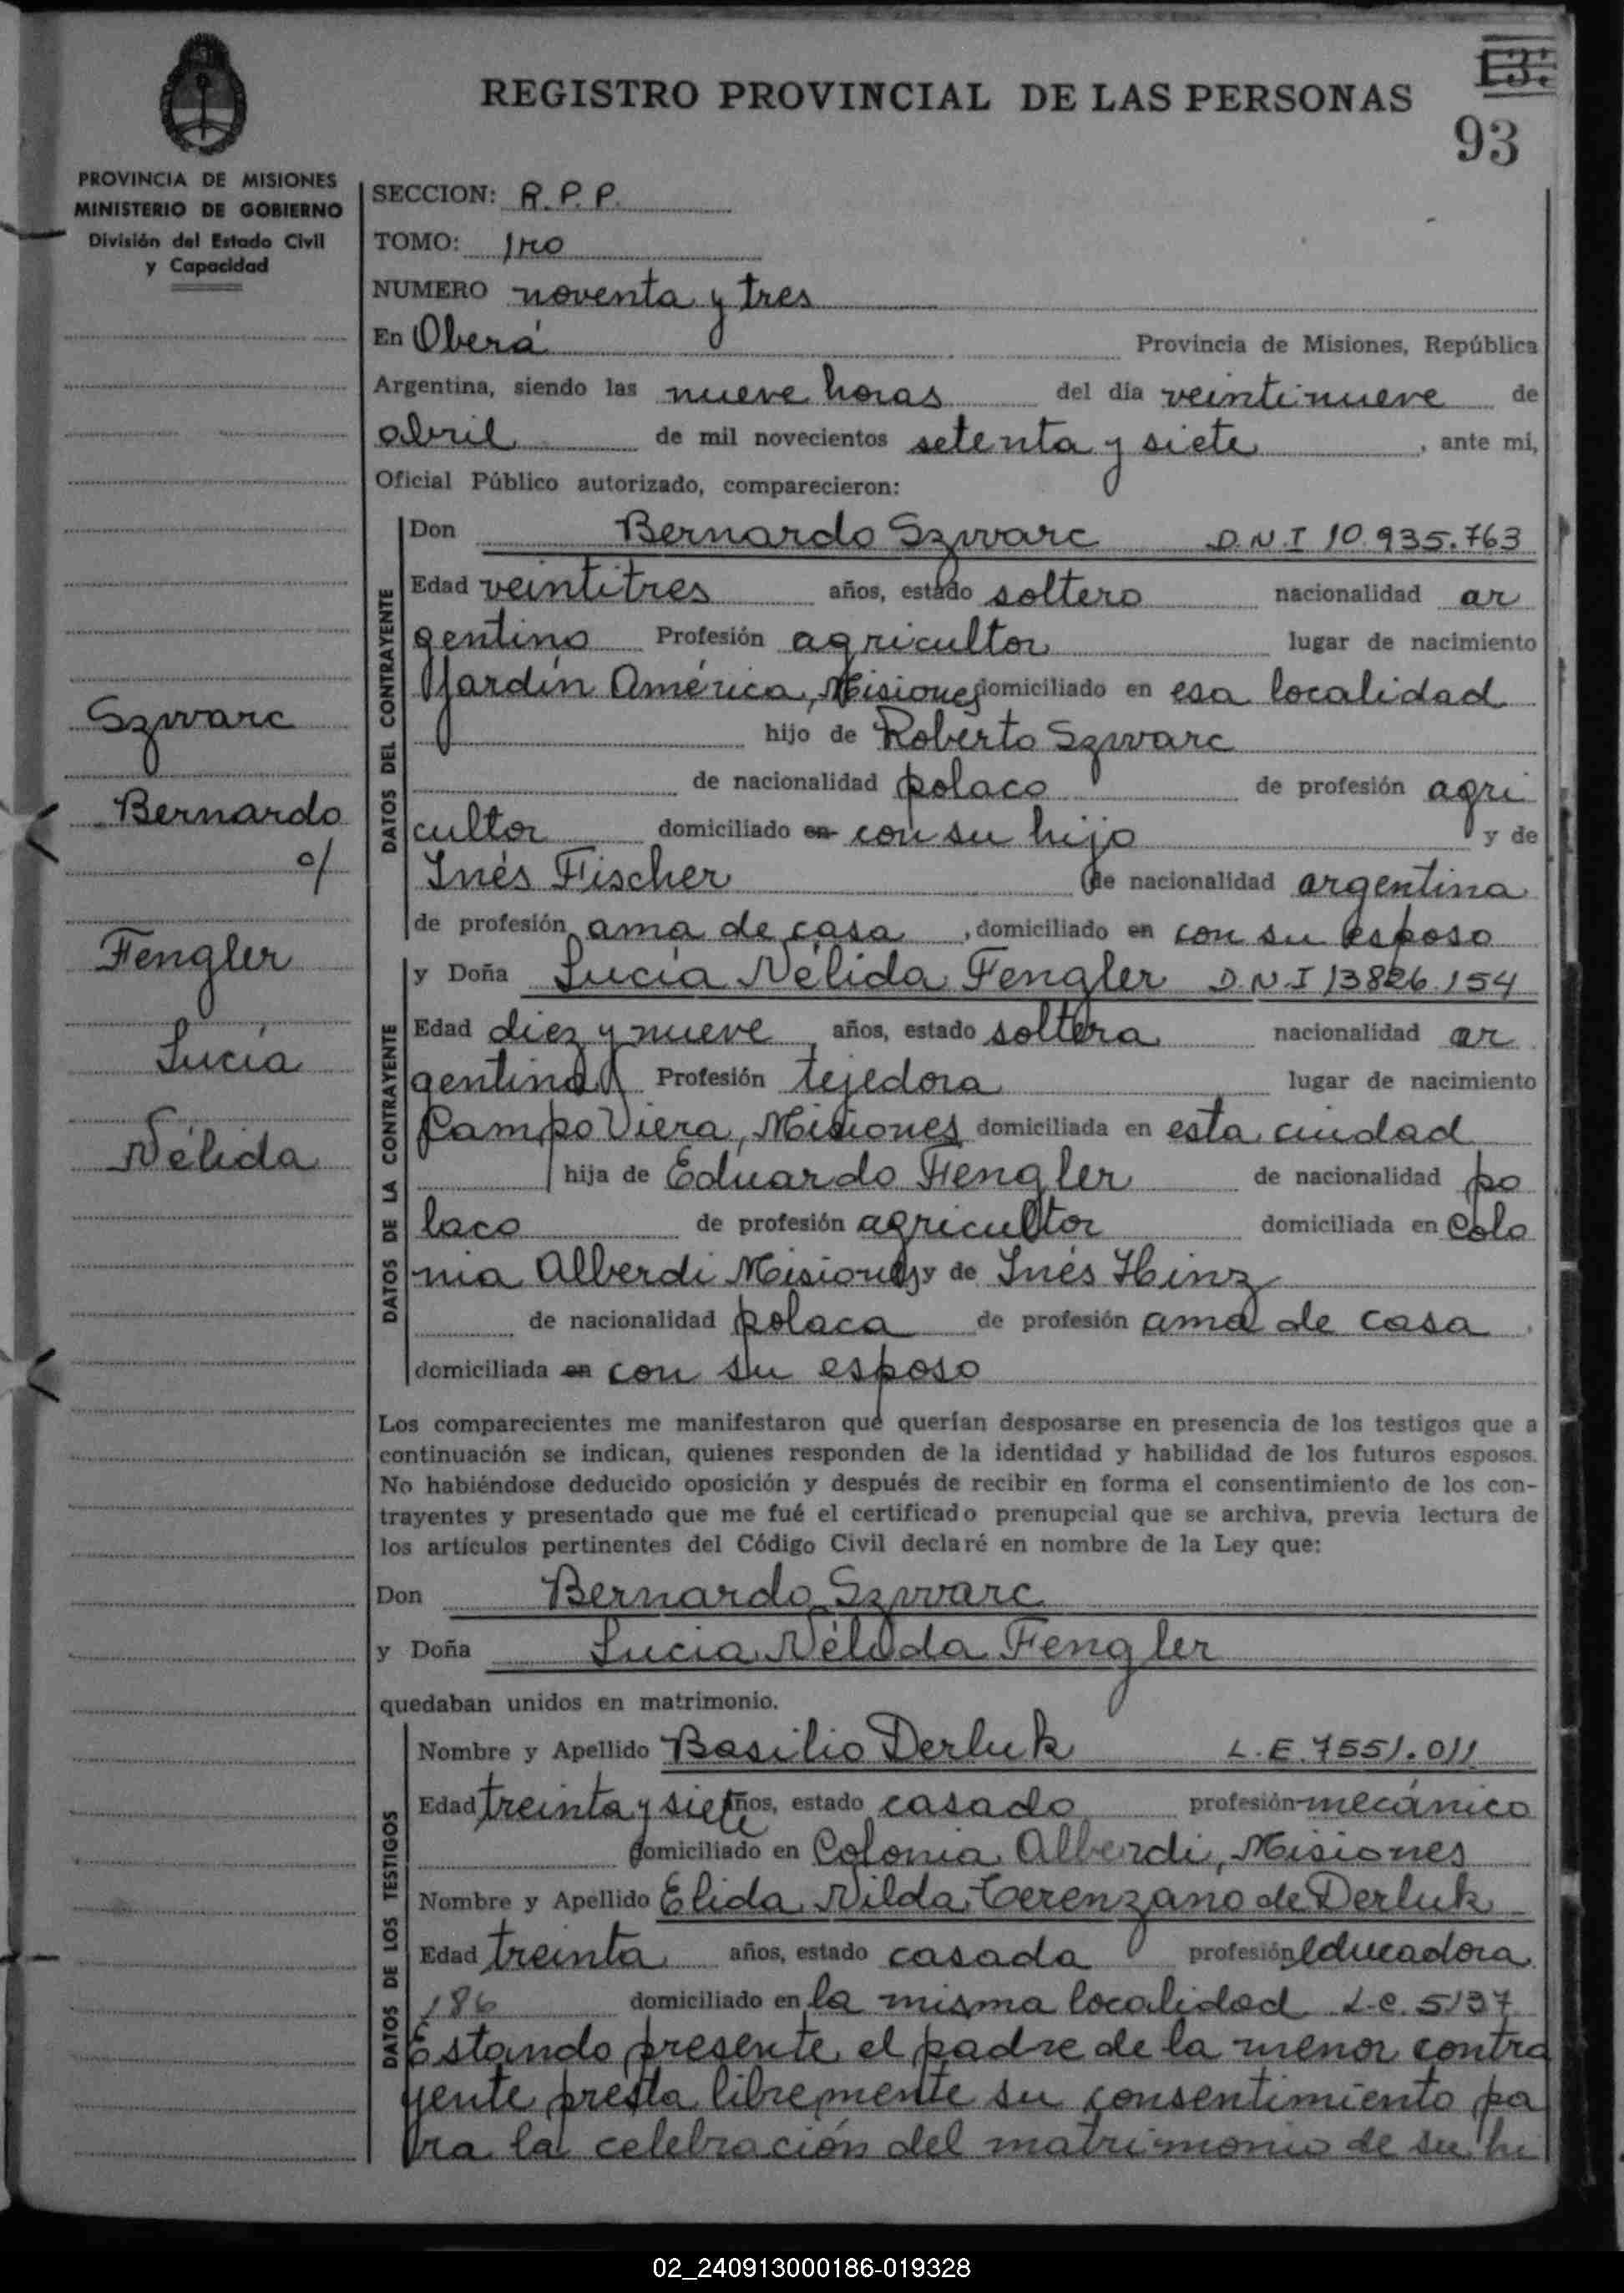 REGISTRO PROVINCIAL DE LAS PERSONAS
93
PROVINCIA DE MISIONES
MINISTERIO DE GOBIERNO
División del Estado Civil
y Capacidad
Szwarc
Bernardo
c/
Fengler
Lucía
Nélida
SECCION: R.P.P.
TOMO: 1ro
NUMERO noventa y tres
En Oberá Provincia de Misiones, República
Argentina, siendo las nueve horas del día veintinueve de
abril de mil novecientos setenta y siete, ante mi,
Oficial Público autorizado, comparecieron:
DATOS DEL CONTRAYENTE
Don Bernardo Szwarc D.N.I 10.935.763
Edad veintitres años, estado soltero nacionalidad ar
gentino Profesión agricultor lugar de nacimiento
Jardín América, Misiones domiciliado en esa localidad
hijo de Roberto Szwarc
de nacionalidad polaco de profesión agri
cultor domiciliado en con su hijo y de
Inés Fischer de nacionalidad argentina
de profesión ama de casa, domiciliado en con su esposo
DATOS DE LA CONTRAYENTE
y Doña Lucía Nélida Fengler D.N.I 13826.154
Edad diez y nueve años, estado soltera nacionalidad ar
gentina Profesión tejedora lugar de nacimiento
Campo Viera, Misiones domiciliada en esta ciudad
hija de Eduardo Fengler de nacionalidad po
laco de profesión agricultor domiciliada en Colo
nia Alberdi Misiones y de Inés Hinz
de nacionalidad polaca de profesión ama de casa,
domiciliada en con su esposo
Los comparecientes me manifestaron que querían desposarse en presencia de los testigos que a
continuación se indican, quienes responden de la identidad y habilidad de los futuros esposos.
No habiéndose deducido oposición y después de recibir en forma el consentimiento de los con-
trayentes y presentado que me fué el certificado prenupcial que se archiva, previa lectura de
los artículos pertinentes del Código Civil declaré en nombre de la Ley que:
Don Bernardo Szwarc
y Doña Lucia Nélida Fengler
quedaban unidos en matrimonio.
DATOS DE LOS TESTIGOS
Nombre y Apellido Basilio Derluk L.E. 7551.011
Edad treinta y siete años, estado casado profesión mecánico
domiciliado en Colonia Alberdi, Misiones
Nombre y Apellido Elida Nilda Cerenzano de Derluk
Edad treinta años, estado casada profesión educadora
186 domiciliado en la misma localidad L.C. 5137
Estando presente el padre de la menor contra
yente presta libremente su consentimiento pa
ra la celebración del matrimonio de su hi
02_240913000186-019328